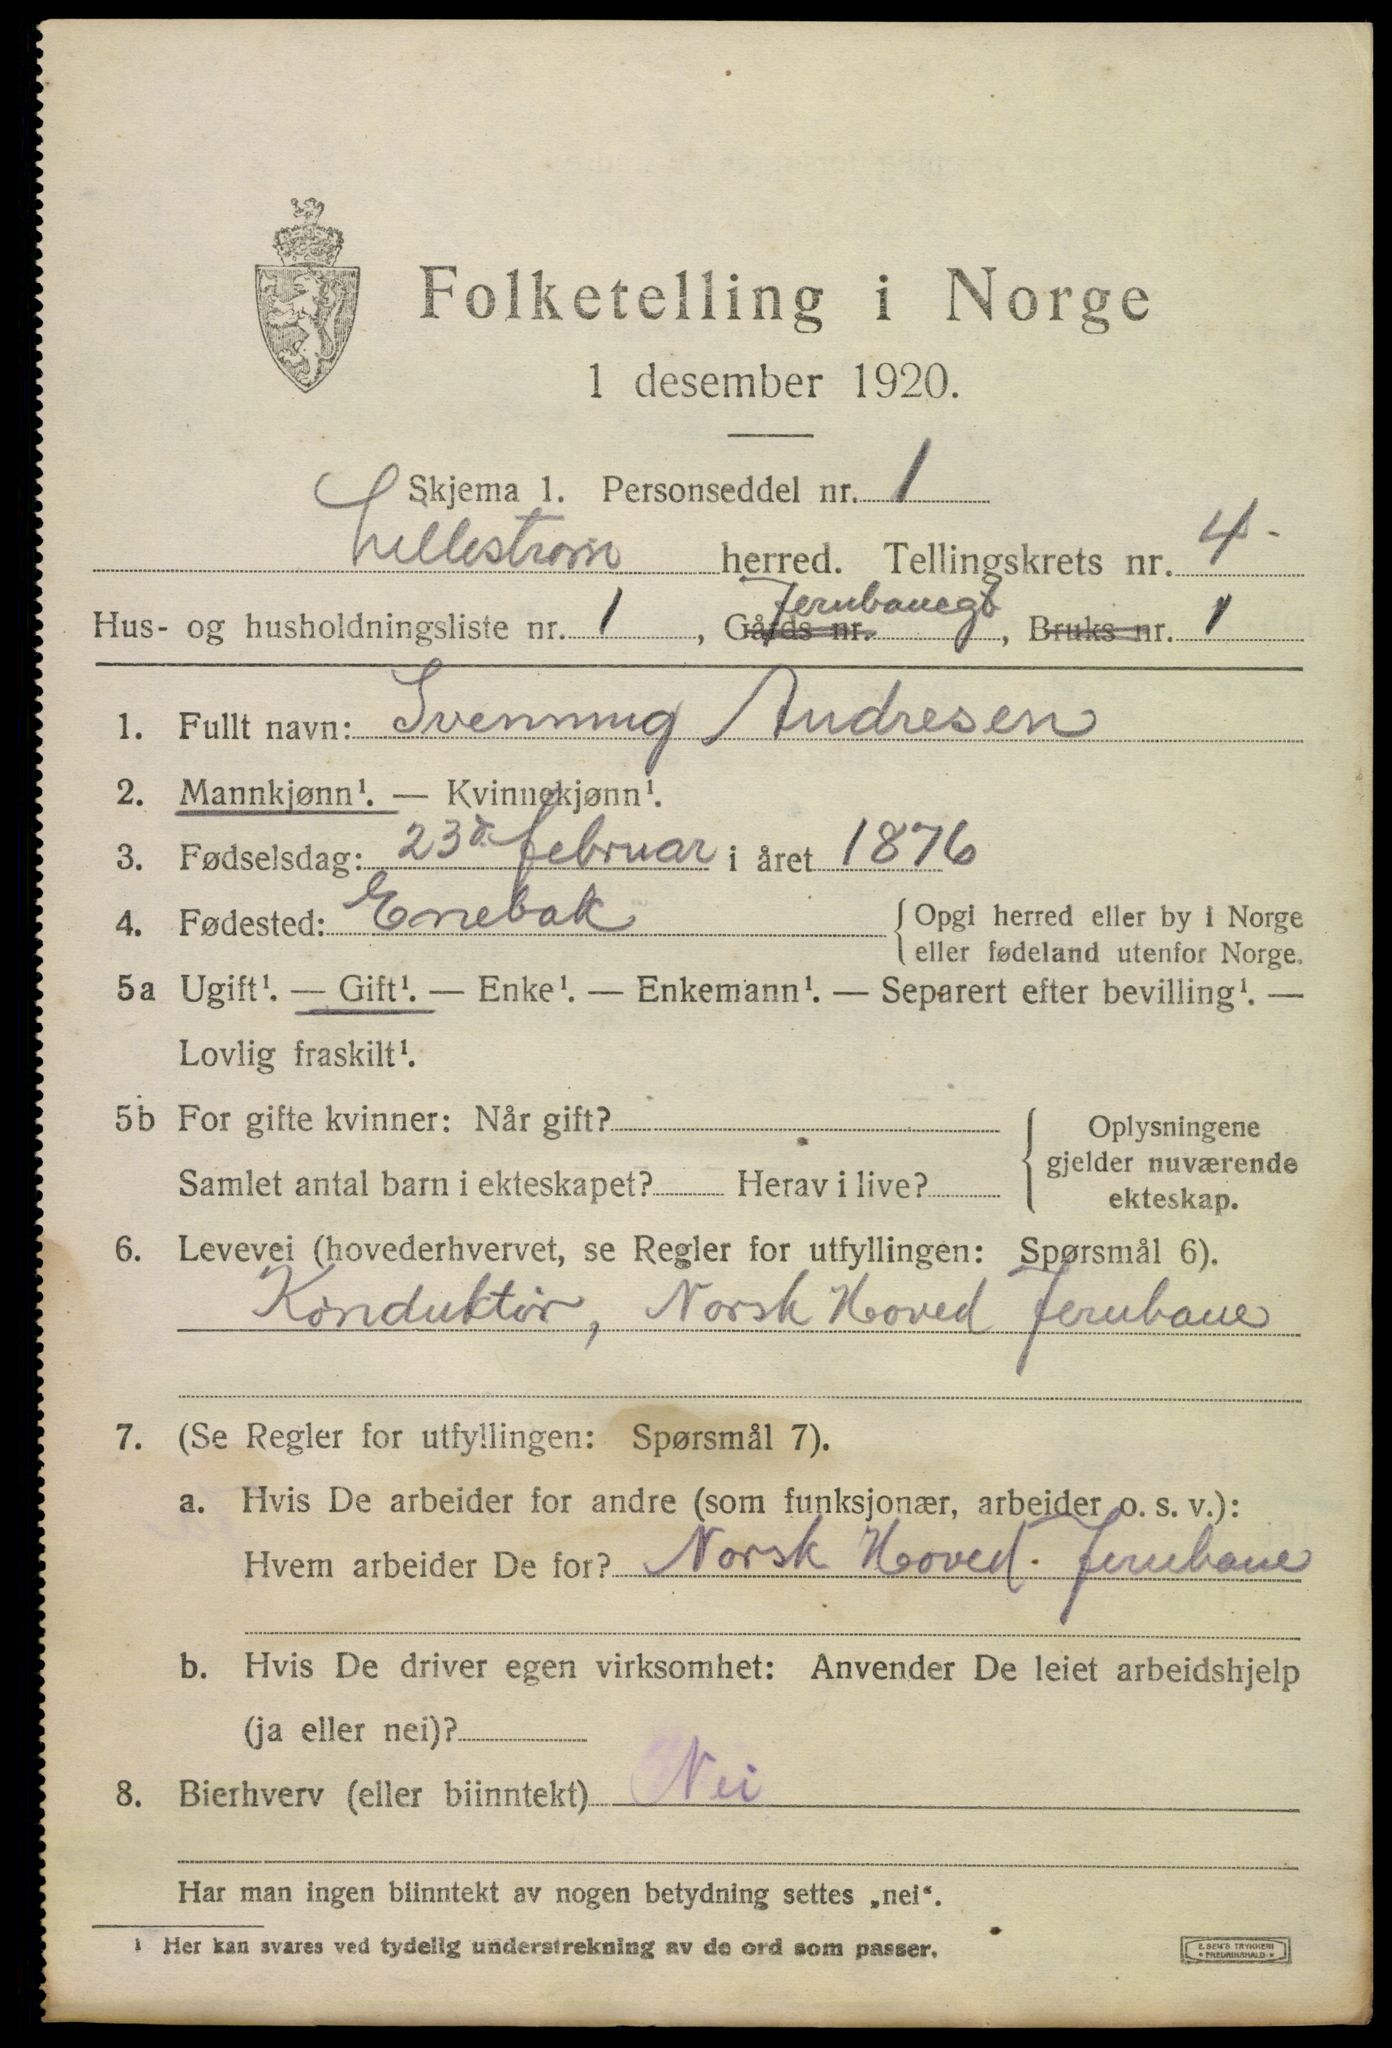 Folketelling i Norge
1 desember 1920.
Skjema 1. Personseddel nr. 1
Lillestrøm herred. Tellingskrets nr. 4
Jernbanegt
Hus- og husholdningsliste nr. 1, Gårds nr. , Bruks nr. 1
1. Fullt navn: Svenning Andresen
2. Mannkjønn¹. — Kvinnekjønn¹.
3. Fødselsdag: 23de februar i året 1876
4. Fødested: Enebak { Opgi herred eller by i Norge
eller fødeland utenfor Norge.
5a Ugift¹. — Gift¹. — Enke¹. — Enkemann¹. — Separert efter bevilling¹. —
Lovlig fraskilt¹.
5b For gifte kvinner: Når gift?
Samlet antal barn i ekteskapet? Herav i live?
{ Oplysningene
gjelder nuværende
ekteskap.
6. Levevei (hovederhvervet, se Regler for utfyllingen: Spørsmål 6).
Konduktør, Norsk Hoved Jernbane
7. (Se Regler for utfyllingen: Spørsmål 7).
a. Hvis De arbeider for andre (som funksjonær, arbeider o. s. v.):
Hvem arbeider De for? Norsk Hoved. Jernbane
b. Hvis De driver egen virksomhet: Anvender De leiet arbeidshjelp
(ja eller nei)?
8. Bierhverv (eller biinntekt) Nei
Har man ingen biinntekt av nogen betydning settes „nei“.
¹ Her kan svares ved tydelig understrekning av de ord som passer.
E. SEM'S TRYKKERI
* FREDRIKSHALD *